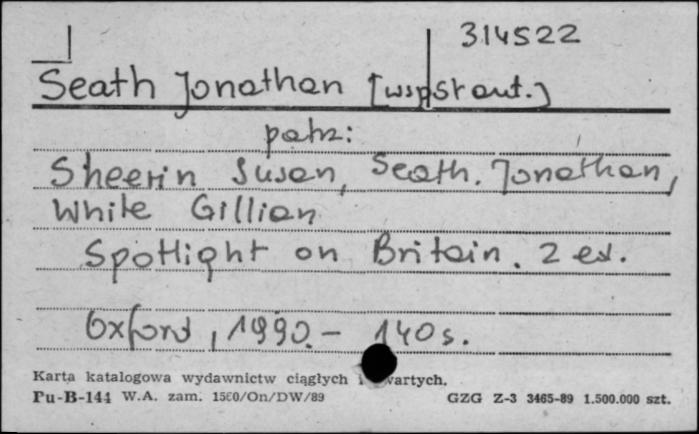 314522
Seath Jonathan [współaut.]
patrz:
Sheerin Susan, Seath. Jonathan,
White Gillian
Spotlight on Britain. 2 ed.
Oxford, 1990. - 140 s.
Karta katalogowa wydawnictw ciągłych i zwartych.
Pu-B-144 W.A. zam. 1560/On/DW/89 GZG Z-3 3465-89 1.500.000 szt.